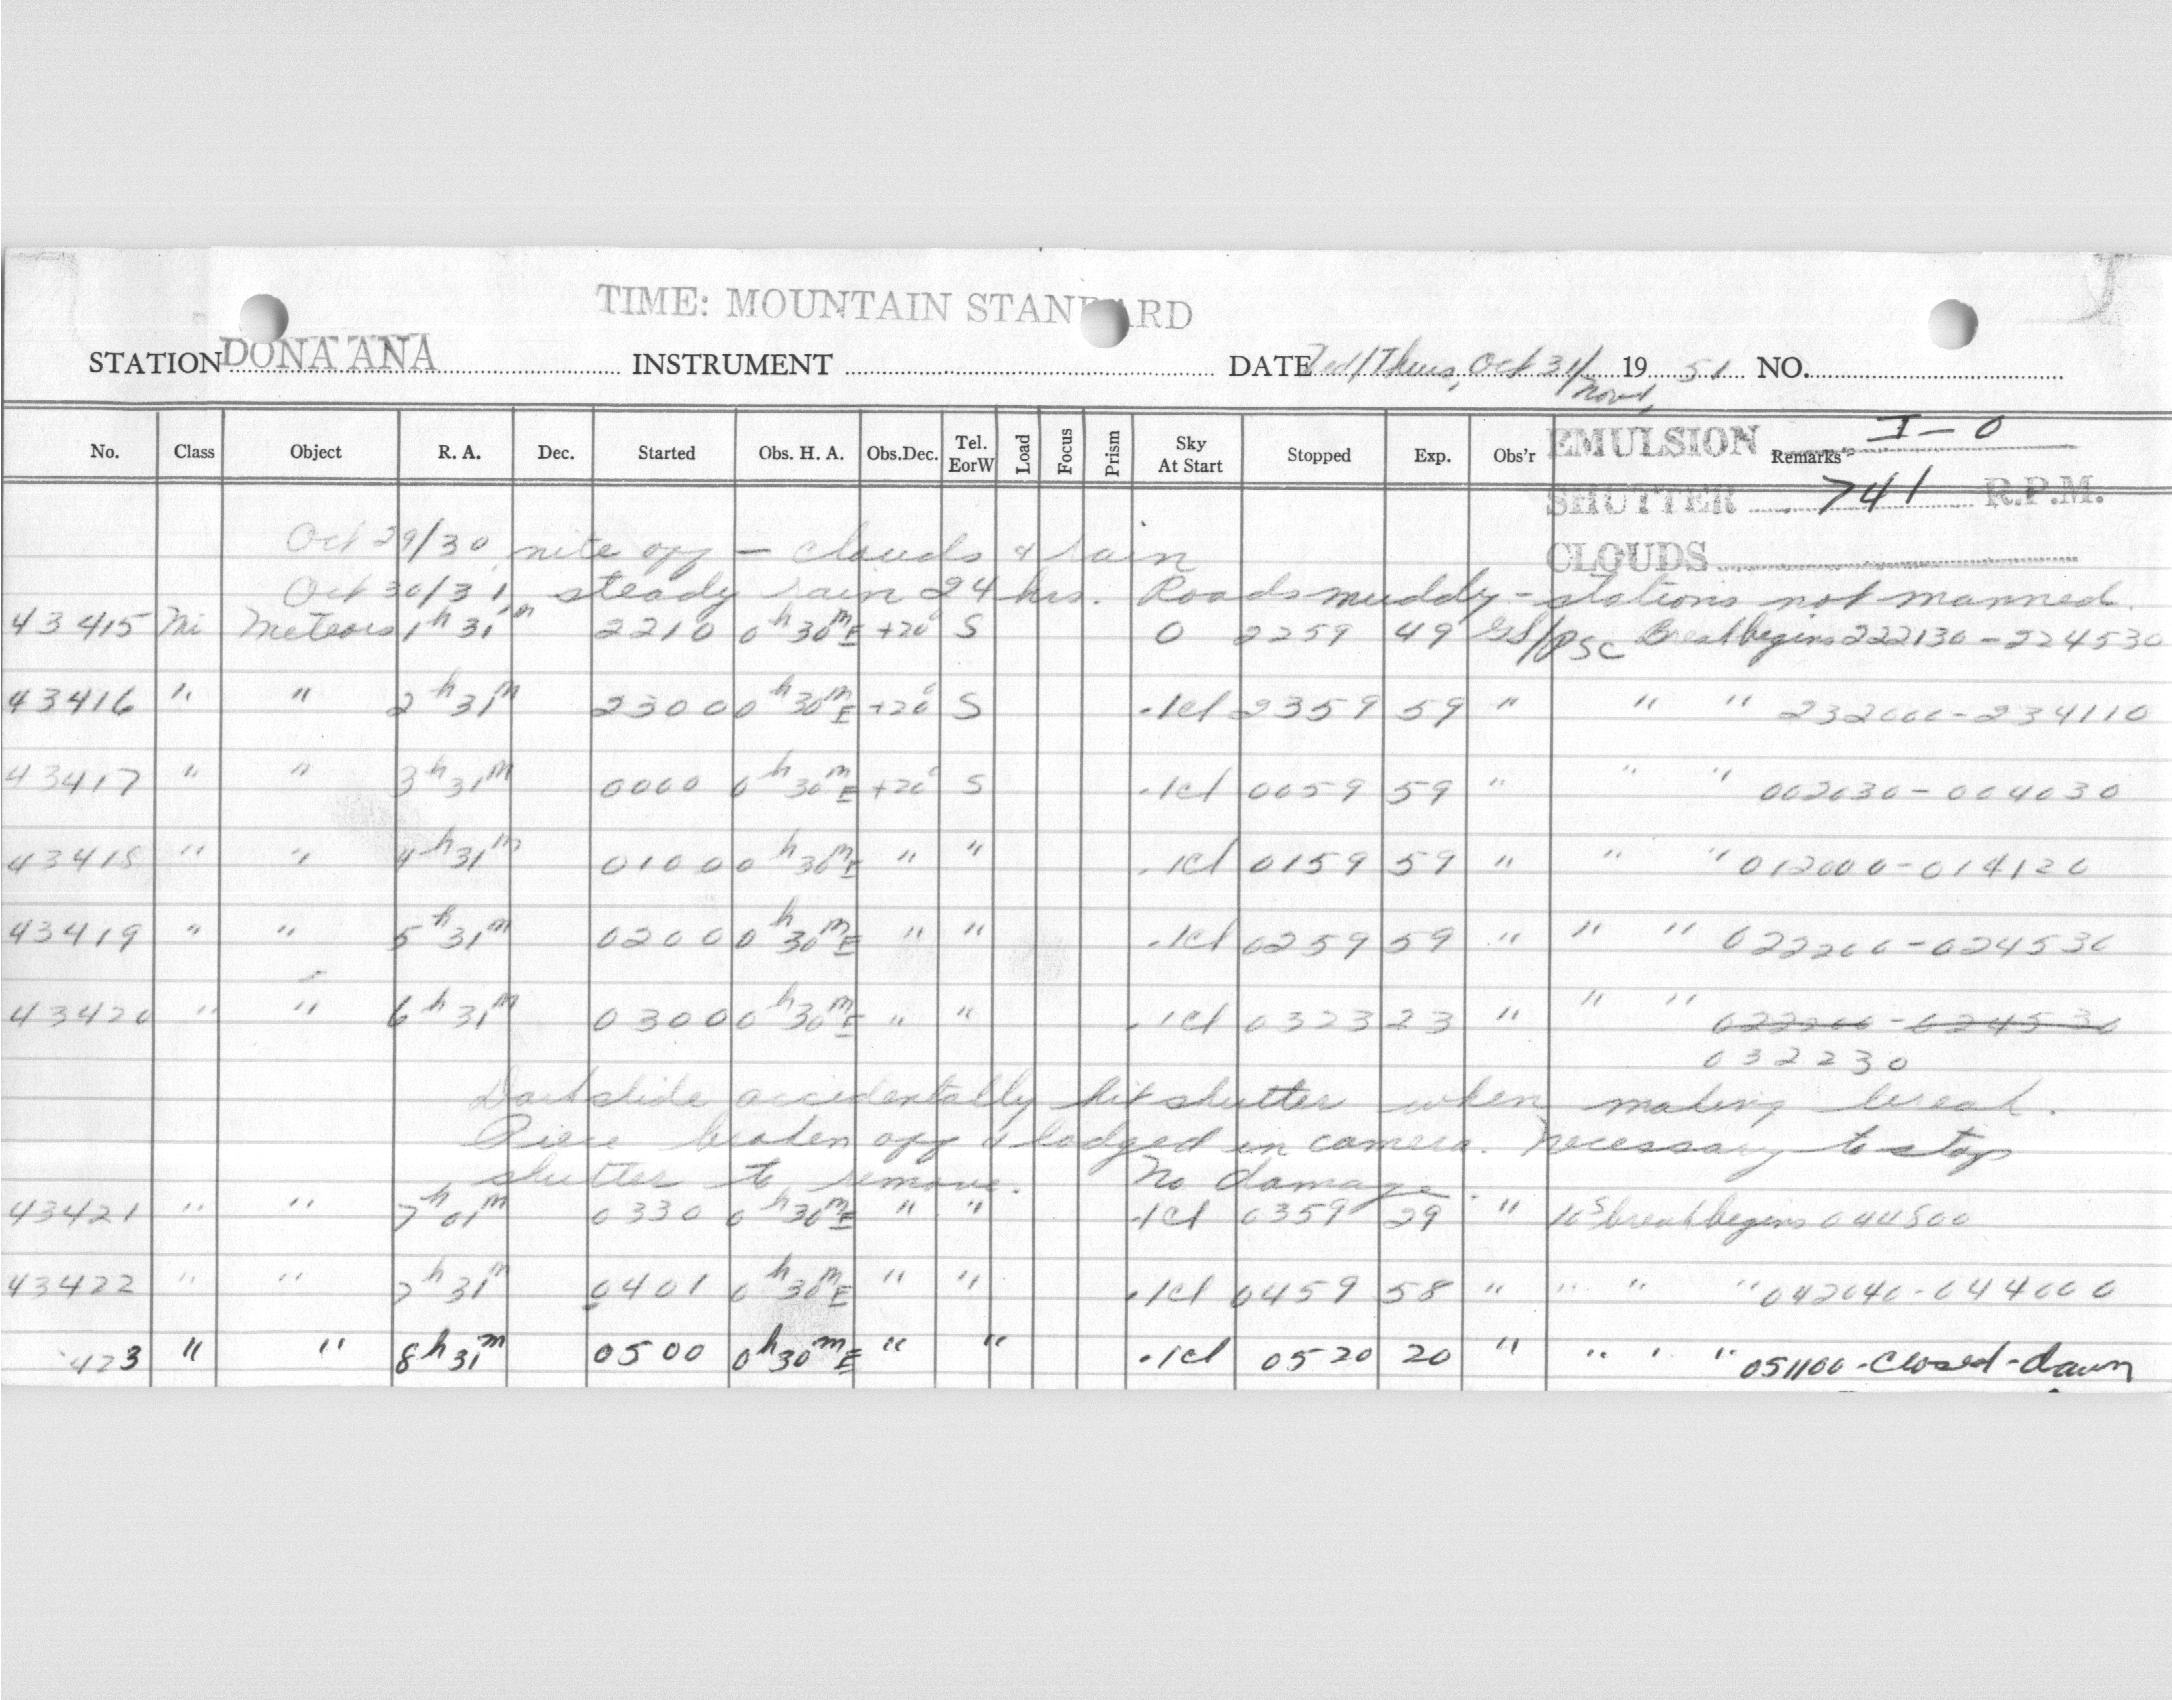 TIME: MOUNTAIN STANDARD
STATION DONA ANA INSTRUMENT DATE Wed/Thurs, Oct 31/Nov 1, 1951 NO.
No. Class Object R. A. Dec. Started Obs. H. A. Obs.Dec. Tel. EorW Load Focus Prism Sky At Start Stopped Exp. Obs'r Remarks
EMULSION I-0
SHUTTER 741 R.P.M.
CLOUDS
Oct 29/30, nite off - clouds & rain
Oct 30/31, steady rain 24 hrs. Roads muddy - stations not manned.
43415 Mi Meteors 1h 31m 2210 0h 30m E +20° S 0 2259 49 GS/PSC Break begins 222130 - 224530
43416 " " 2h 31m 2300 0h 30m E +20° S .1cl 2359 59 " " " 232000 - 234110
43417 " " 3h 31m 0000 0h 30m E +20° S .1cl 0059 59 " " " 002030 - 004030
43418 " " 4h 31m 0100 0h 30m E " " .1cl 0159 59 " " " 012000 - 014120
43419 " " 5h 31m 0200 0h 30m E " " .1cl 0259 59 " " " 022200 - 024530
43420 " " 6h 31m 0300 0h 30m E " " .1cl 0323 23 " " " 022200 - 024530
032230
Darkslide accidentally hit shutter when making break.
Piece broken off & lodged in camera. Necessary to stop
shutter to remove. No damage.
43421 " " 7h 01m 0330 0h 30m E " " .1cl 0359 29 " 10s break begins 044500
43422 " " 7h 31m 0401 0h 30m E " " .1cl 0459 58 " " " " 042040 - 044000
423 " " 8h 31m 0500 0h 30m E " " .1cl 0520 20 " " " " 051100 - Closed - dawn